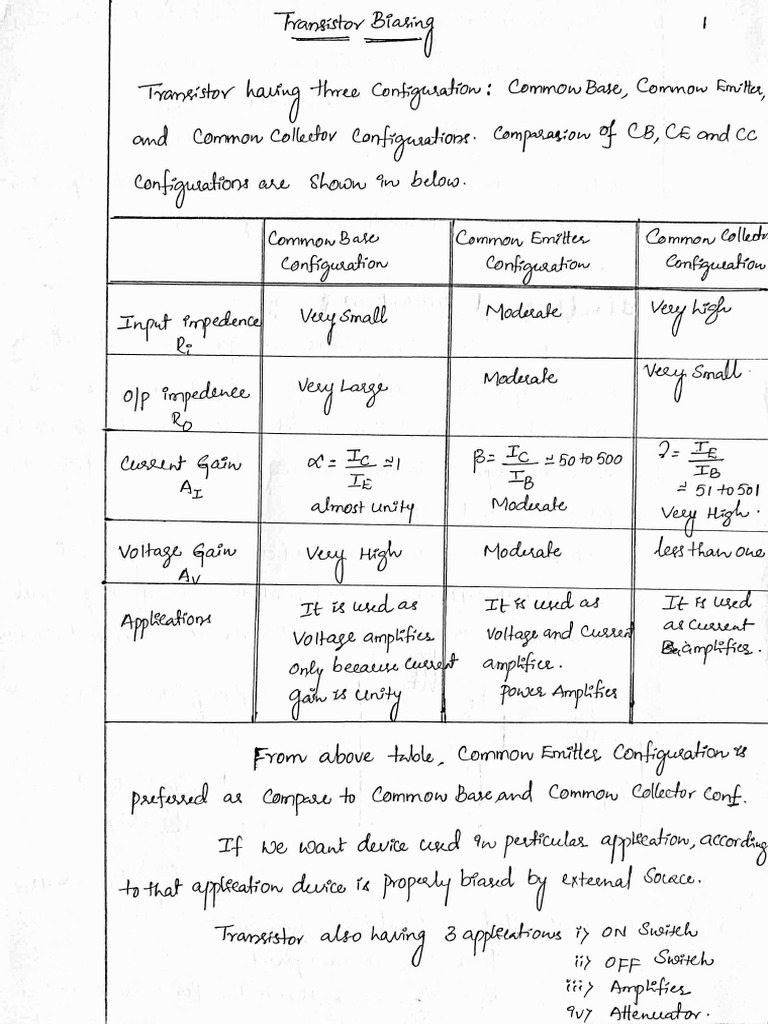 Transistor Biasing
1
Transistor having three Configuration: Common Base, Common Emitter,
and Common Collector Configurations. Comparasion of CB, CE and CC
Configurations are shown in below.
Common Base Configuration
Common Emitter Configuration
Common Collector Configuration
Input impedence Ri
Very Small
Moderate
Very high
O/p impedence Ro
Very Large
Moderate
Very Small.
Current Gain AI
α = IC/IE ≃ 1 almost unity
β = IC/IB ≃ 50 to 500 Moderate
γ = IE/IB ≃ 51 to 501 Very High.
Voltage Gain AV
Very High
Moderate
less than one
Applications
It is used as
Voltage amplifier
only because current
gain is unity
It is used as
voltage and current
amplifier.
power Amplifier
It is used
as current
amplifier.
From above table, Common Emitter Configuration is
preferred as compare to Common Base and Common Collector Conf.
If we want device used in perticular application, according
to that application device is properly biased by external source.
Transistor also having 3 applications i) ON Switch
ii) OFF Switch
iii) Amplifier
iv) Attenuator.